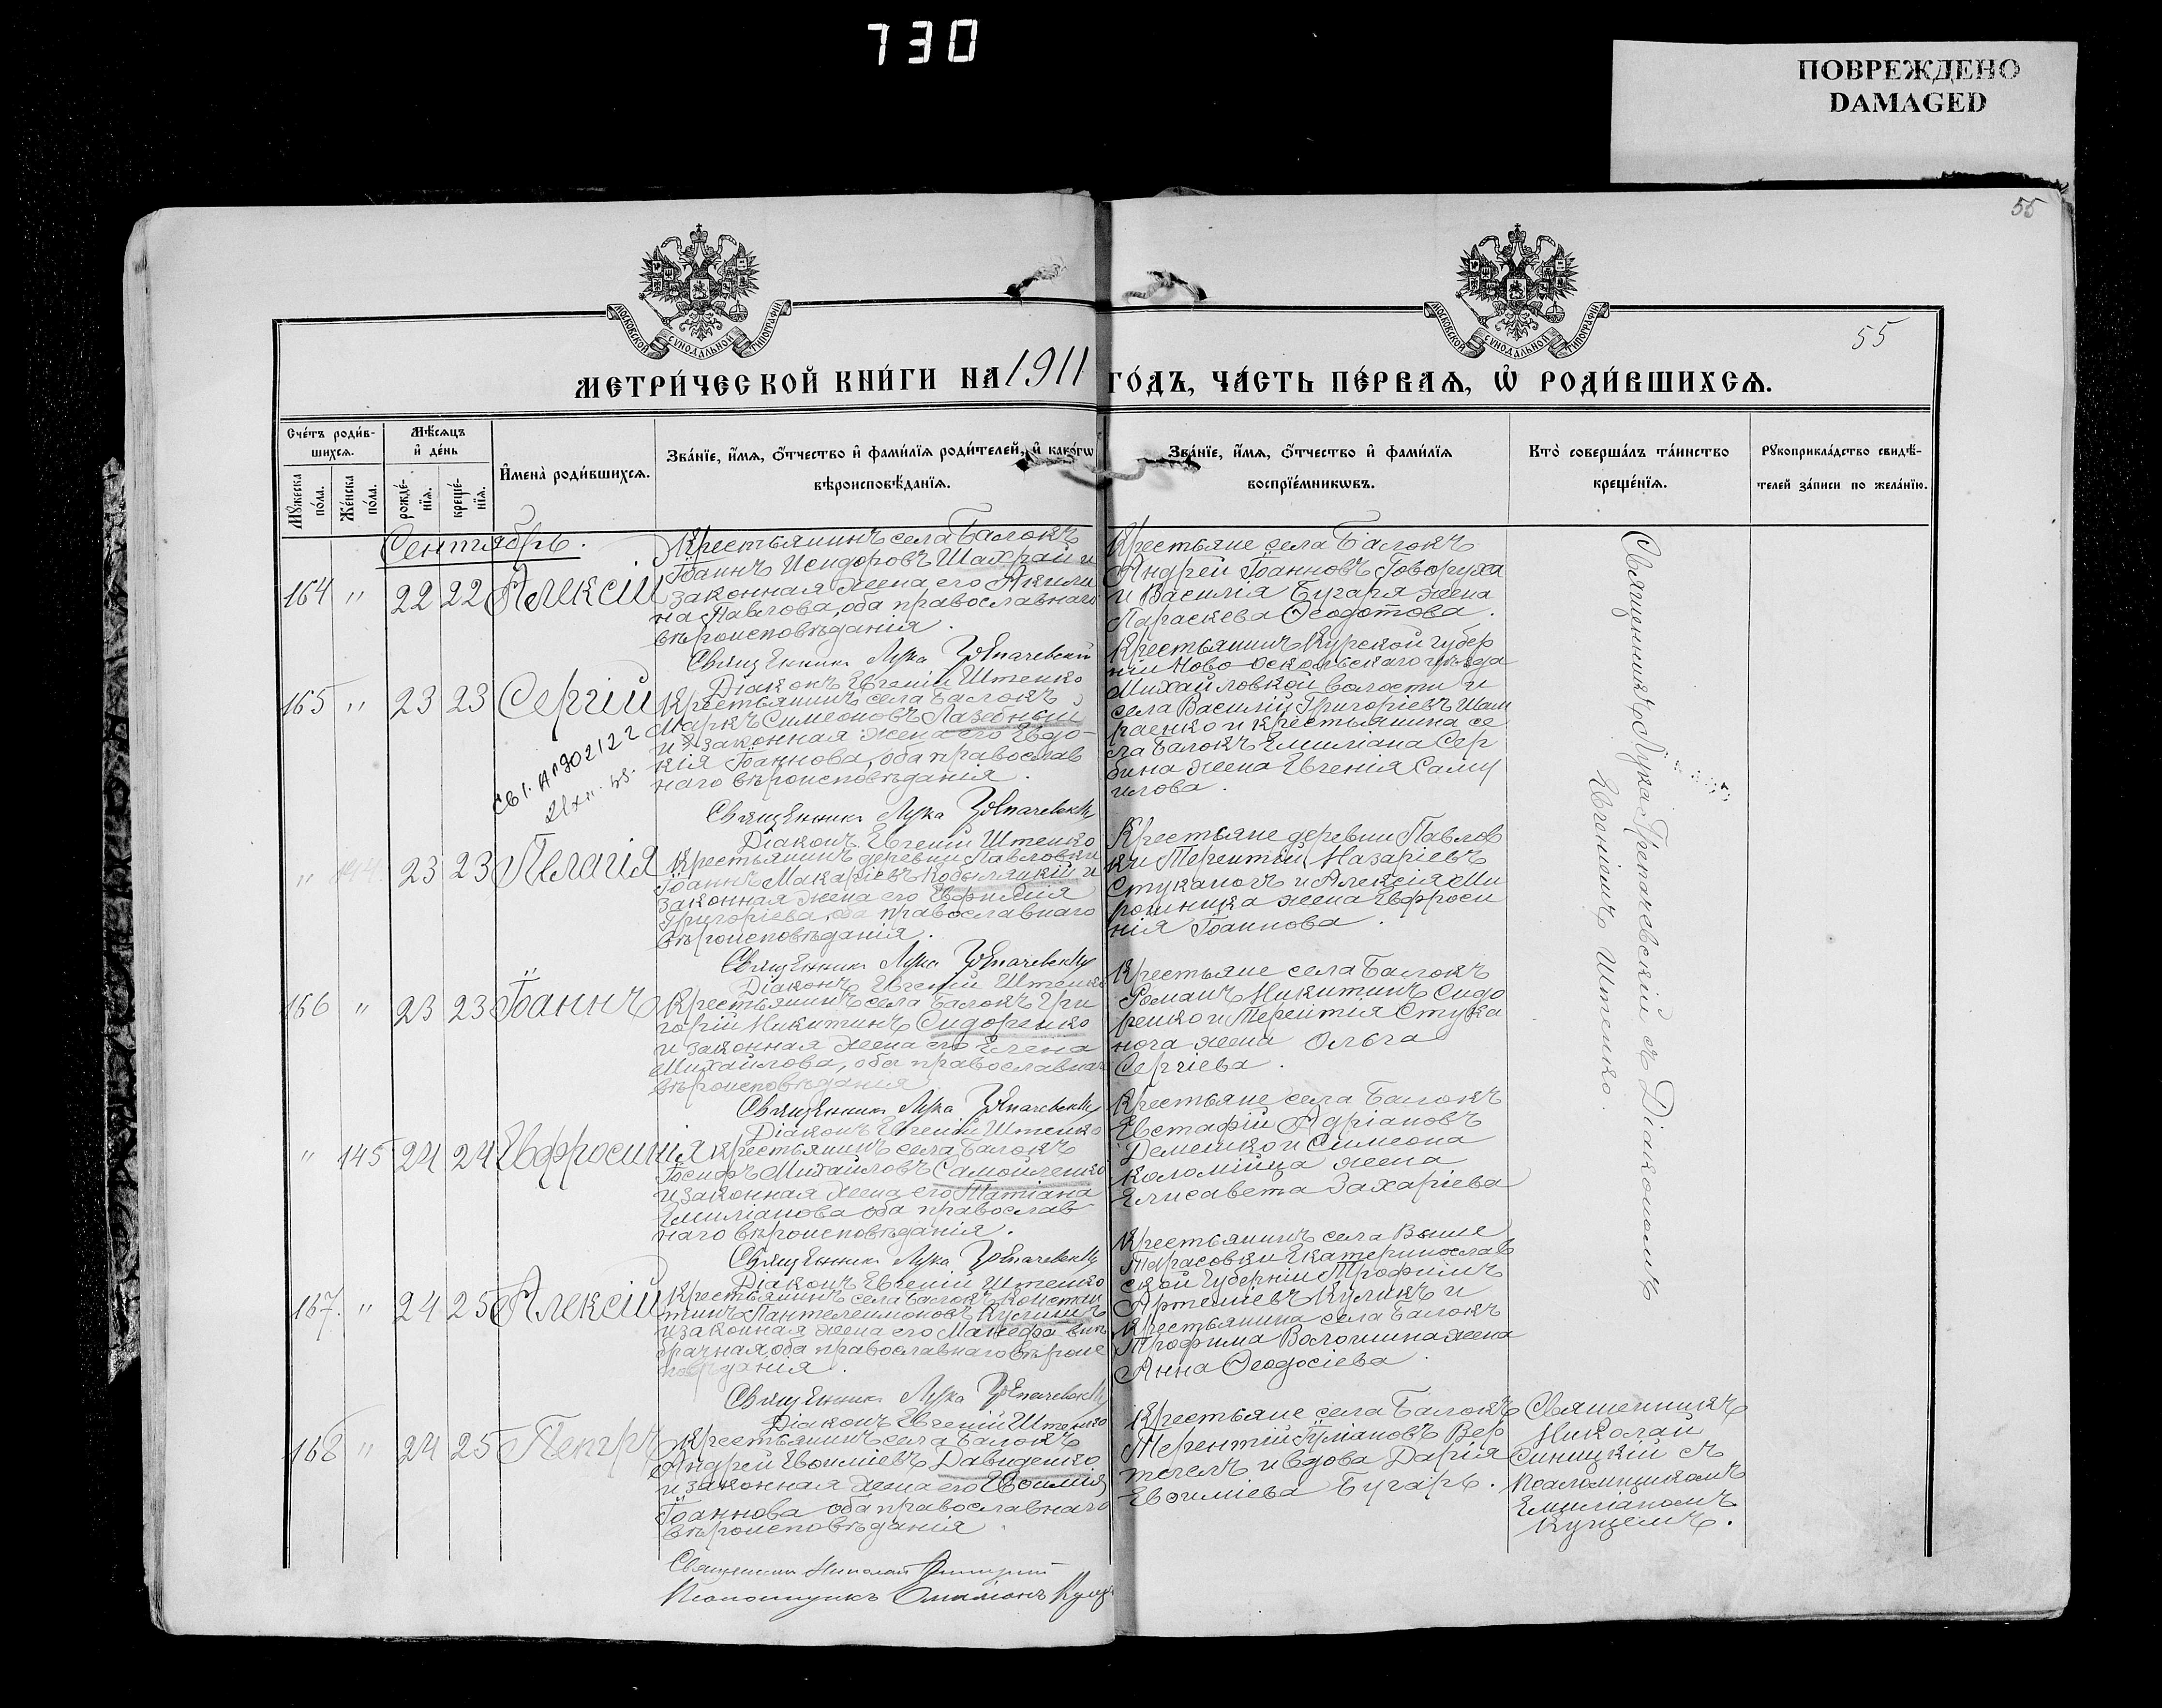 730
ПОВРЕЖДЕНО
DAMAGED
55
МОСКОВСКОЙ СѴНОДАЛЬНОЙ ТИПОГРАФІИ
МОСКОВСКОЙ СѴНОДАЛЬНОЙ ТИПОГРАФІИ
55
МЕТРИ́ЧЕСКОЙ КНИ́ГИ НА 1911 ГО́ДЪ, ЧА́СТЬ ПЕ́РВАѦ, Ѡ҆ РОДИ́ВШИХСѦ.
Сче́тъ роди́в-
шихсѧ.
Мꙋжеска по́ла.
Же́нска по́ла.
Мѣ́сѧцъ
и҆ де́нь
рожде́-
нїѧ.
креще́-
нїѧ.
И҆мена̀ роди́вшихсѧ.
Зва́нїе, и҆́мѧ, ѻ҆́тчество и҆ фами́лїѧ роди́телей, и҆ како́гѡ
вѣроисповѣ́данїѧ.
Зва́нїе, и҆́мѧ, ѻ҆́тчество и҆ фами́лїѧ
воспрїе́мникѡвъ.
Кто̀ соверша́лъ та́инство
креще́нїѧ.
Рꙋкоприкла́дство свидѣ́-
телей за́писи по жела́нїю.
Сентябрь.
164 " 22 22 Алексій
Крестьянинъ села Балокъ
Іоаннъ Исидоровъ Шахрай и
законная жена его Акили
на Павлова, оба православнаго
вѣроисповѣданія.
Священникъ Лука Грепачевскій
Діаконъ Евгеній Штепко
Крестьяне села Балокъ
Андрей Іоанновъ Говоруха
и Василія Бугаря жена
Параскева Ѳеодотова.
165 " 23 23 Сергій
Крестьянинъ села Балокъ
Маркъ Симеоновъ Лазебный
и законная жена его Евдо-
кія Іоаннова, оба православ
наго вѣроисповѣданія.
Священникъ Лука Грепачевскій
Діаконъ Евгеній Штепко
Крестьянинъ Курской губер
ніи Ново-Оскольскаго уѣзда
Михайловкой волости и
села Василій Григоріевъ Шап
раенко и крестьянина се
ла Балокъ Емиліана Сер
бина жена Евгенія Саму
илова.
" 144 23 23 Пелагія
Крестьянинъ деревни Павловки
Іоаннъ Макаріевъ Кобыляцкій и
законная жена его Евфимія
Григоріева, оба православнаго
вѣроисповѣданія.
Священникъ Лука Грепачевскій
Діаконъ Евгеній Штепко
Крестьяне деревни Павлов
ки Терентій Назаріевъ
Стуканогъ и Алексія Ми
рошника жена Евфроси
нія Іоаннова.
166 " 23 23 Іоаннъ
Крестьянинъ села Балокъ Гри
горій Никитинъ Сидоренко
и законная жена его Елена
Михайлова, оба православнаго
вѣроисповѣданія.
Священникъ Лука Грепачевскій
Діаконъ Евгеній Штепко
Крестьяне села Балокъ
Романъ Никитинъ Сидо
ренко и Терентія Стука
нога жена Ольга
Сергіева.
" 145 24 24 Евфросинія
Крестьянинъ села Балокъ
Іосифъ Михайловъ Самойленко
и законная жена его Татіана
Емиліанова оба православ
наго вѣроисповѣданія.
Священникъ Лука Грепачевскій
Діаконъ Евгеній Штепко
Крестьяне села Балокъ
Евстафій Адріановъ
Демешко и Симеона
Коломійца жена
Елисавета Захаріева
167. " 24 25 Алексій
Крестьянинъ села Балокъ Констан
тинъ Пантелеимоновъ
и законная жена его Манефа
оба православнаго вѣроис
повѣданія.
Священникъ Лука Грепачевскій
Діаконъ Евгеній Штепко
Крестьянинъ села Выше
Тарасовки Екатеринослав
ской губерніи Трофимъ
Артеміевъ Куликъ и
Крестьянина села Балокъ
Трофима Волошина жена
Анна Ѳеодосіева.
168 " 24 25 Петръ
Крестьянинъ села Балокъ
Андрей Евѳиміевъ Давиденко
и законная жена его Евѳимія
Іоаннова оба православнаго
вѣроисповѣданія.
Священникъ Николай Синицкій
Псаломщикъ Емиліанъ Куцъ
Крестьяне села Балокъ
Терентій Іуліановъ Вер
тегелъ и вдова Дарія
Евѳиміева Бугарь.
Священникъ Лука Грепачевскій съ Діакономъ
Евгеніемъ Штепко.
Священникъ
Николай
Синицкій съ
псаломщикомъ
Емиліаномъ
Куцемъ.